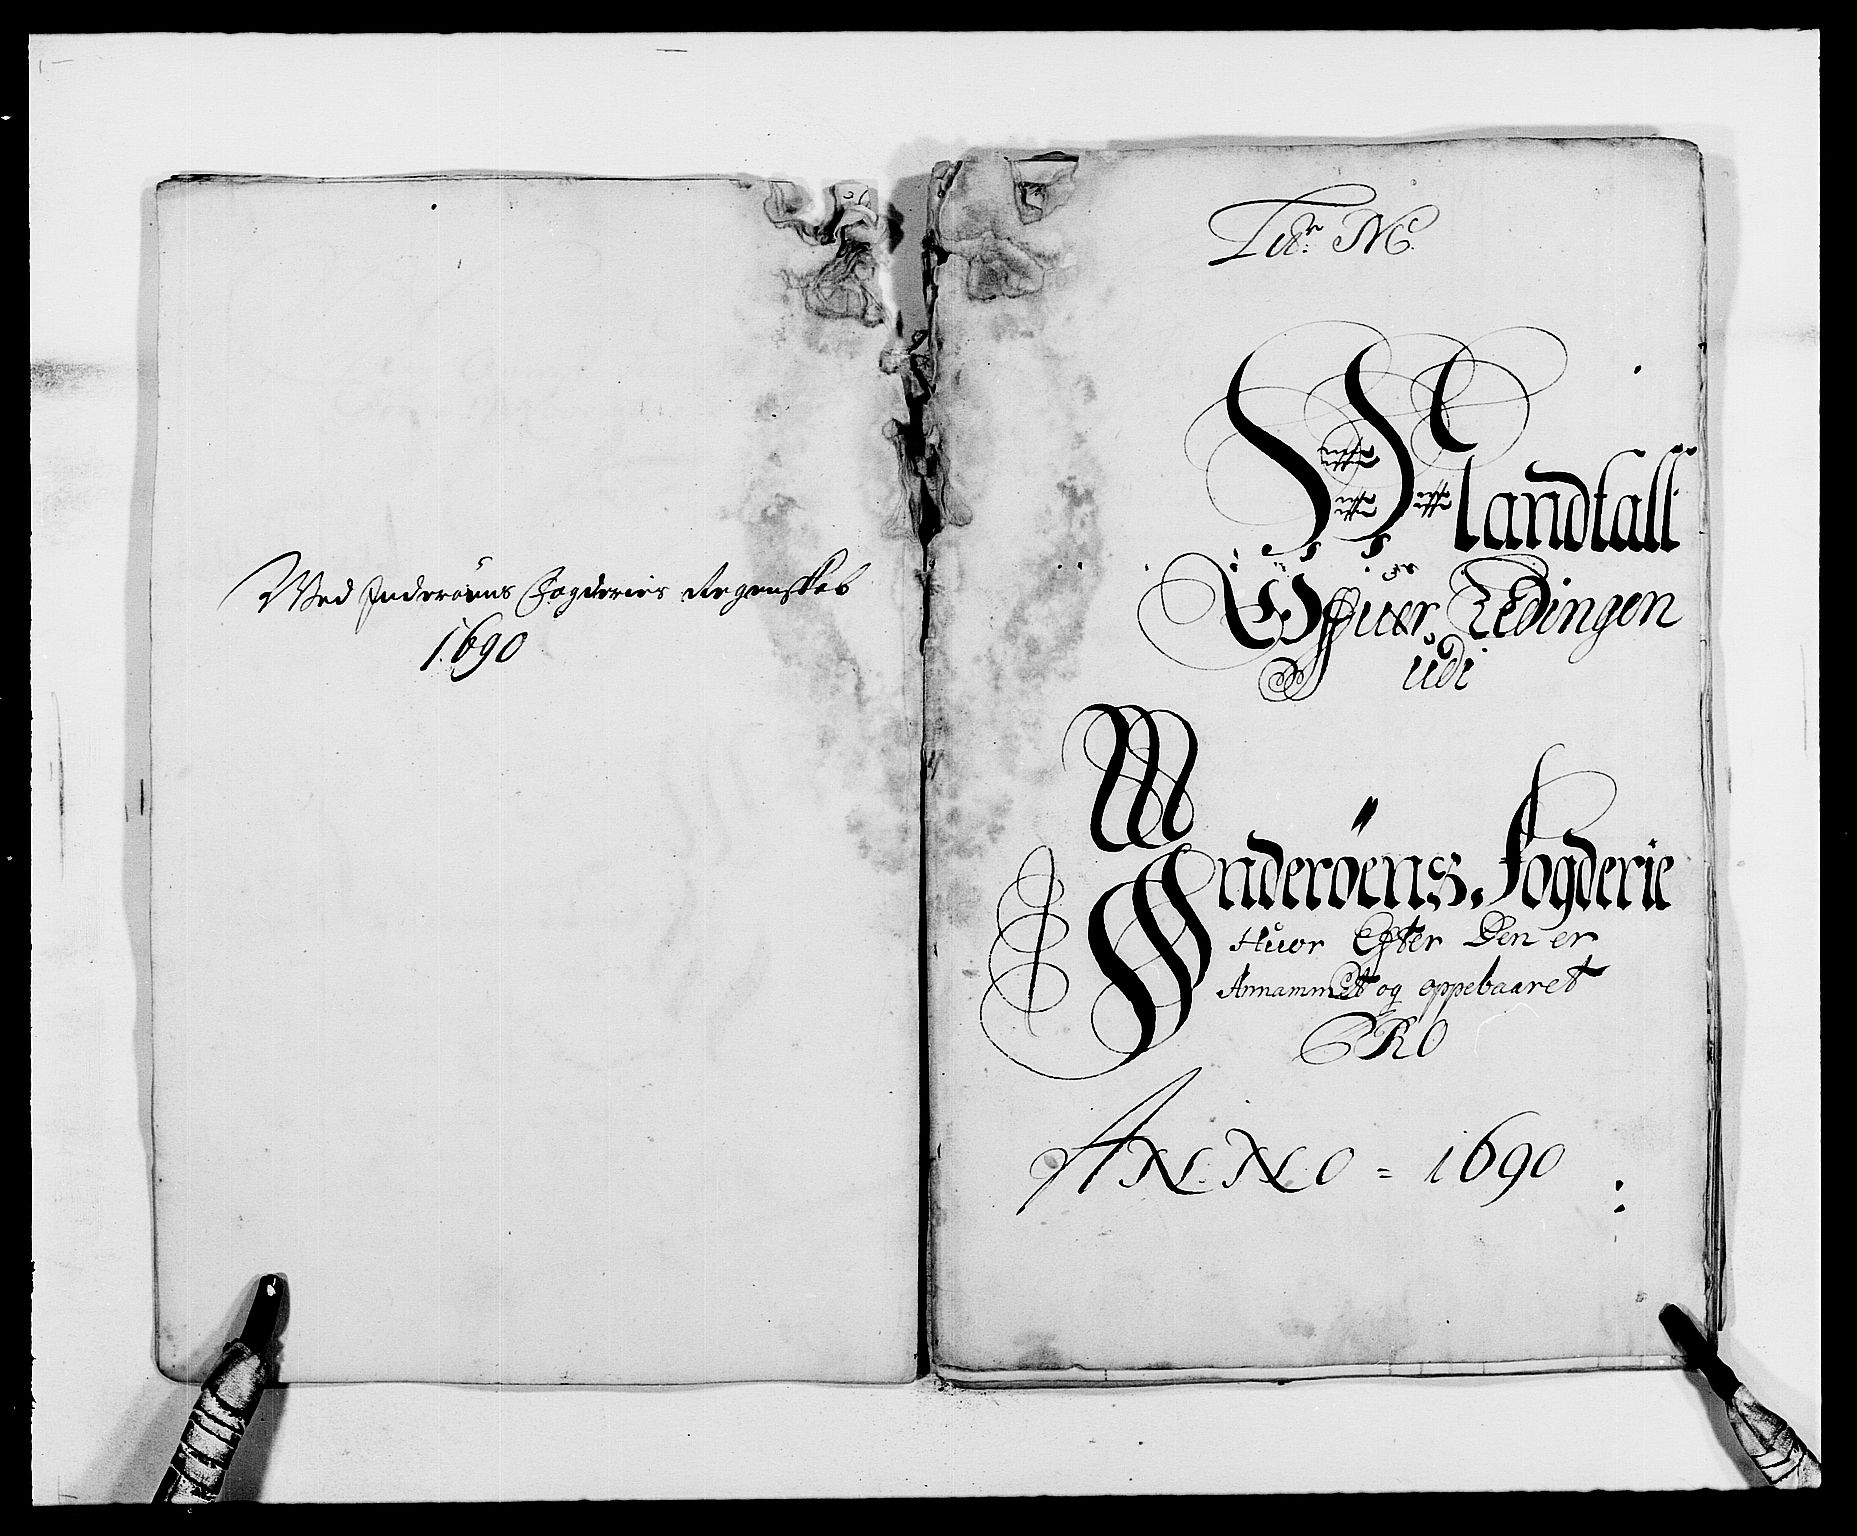 Med Inderøens Fogderies Regenskab
1690
Litr: M:
Mandtall
Offuer Ledingen
udi
Inderøens. Fogderie
Huor Efter Den er
Annammet og oppebaaret
PRO
ANNO = 1690